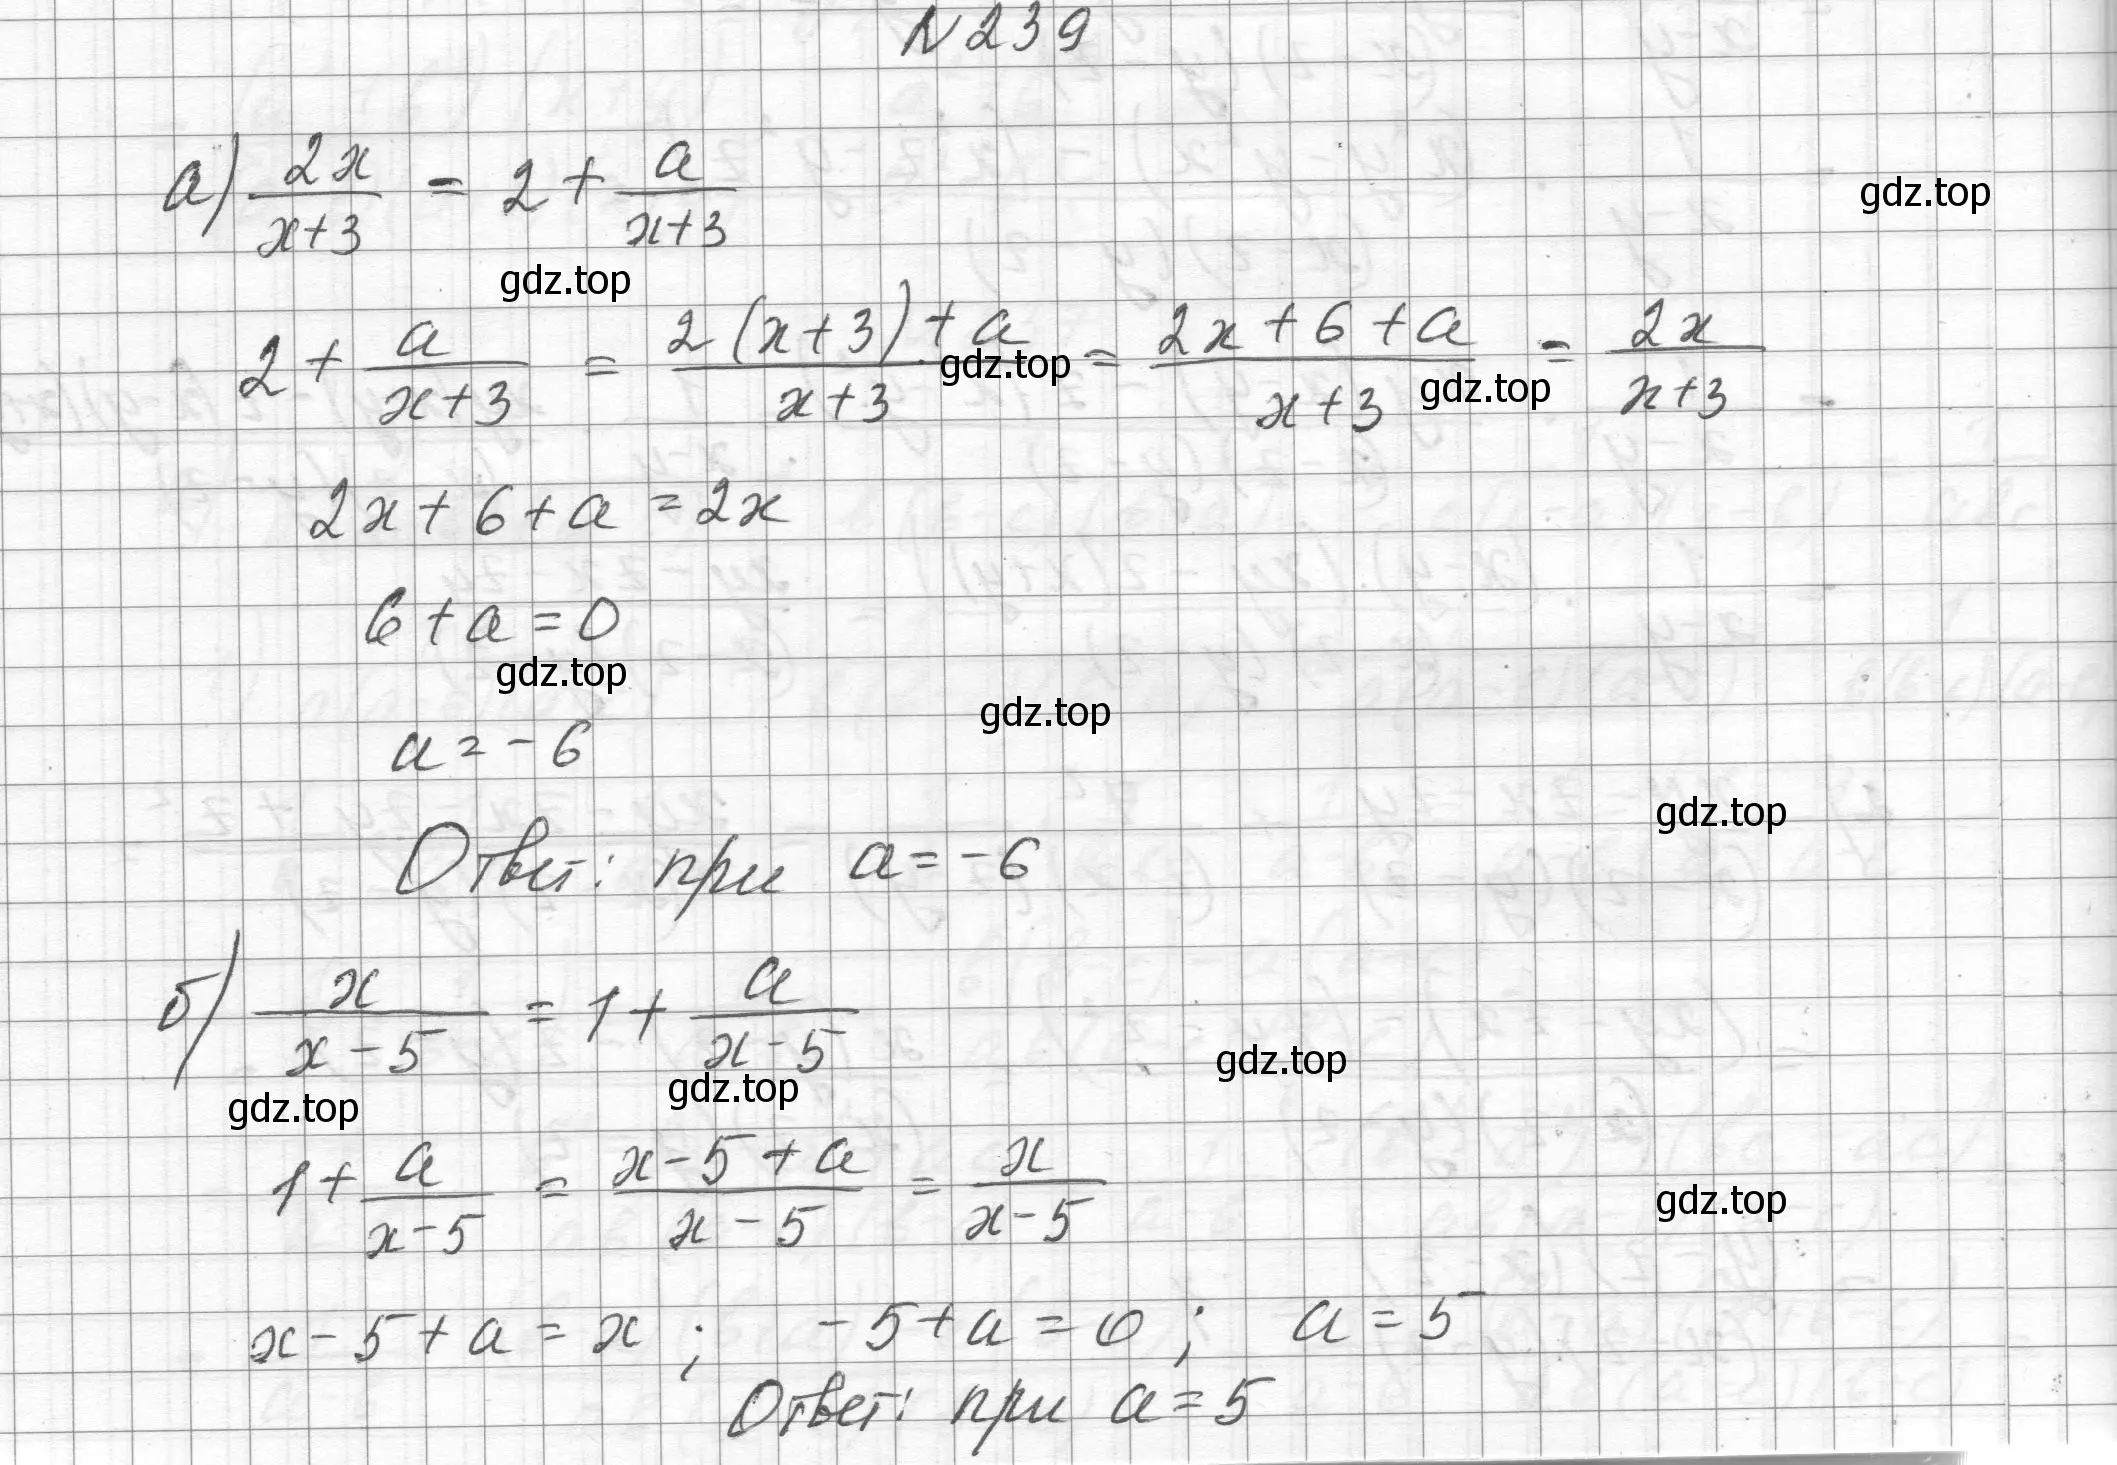 N 239
а) 2x/(x+3) = 2 + a/(x+3)
gdz.top
gdz.top
2 + a/(x+3) = (2(x+3)+a)/(x+3) = (2x+6+a)/(x+3) = 2x/(x+3)
gdz.top
gdz.top
2x + 6 + a = 2x
6 + a = 0
gdz.top
gdz.top
a = -6
gdz.top
Ответ: при a = -6
б) x/(x-5) = 1 + a/(x-5)
gdz.top
gdz.top
gdz.top
1 + a/(x-5) = (x-5+a)/(x-5) = x/(x-5)
gdz.top
x - 5 + a = x ; -5 + a = 0 ; a = 5
Ответ: при a = 5